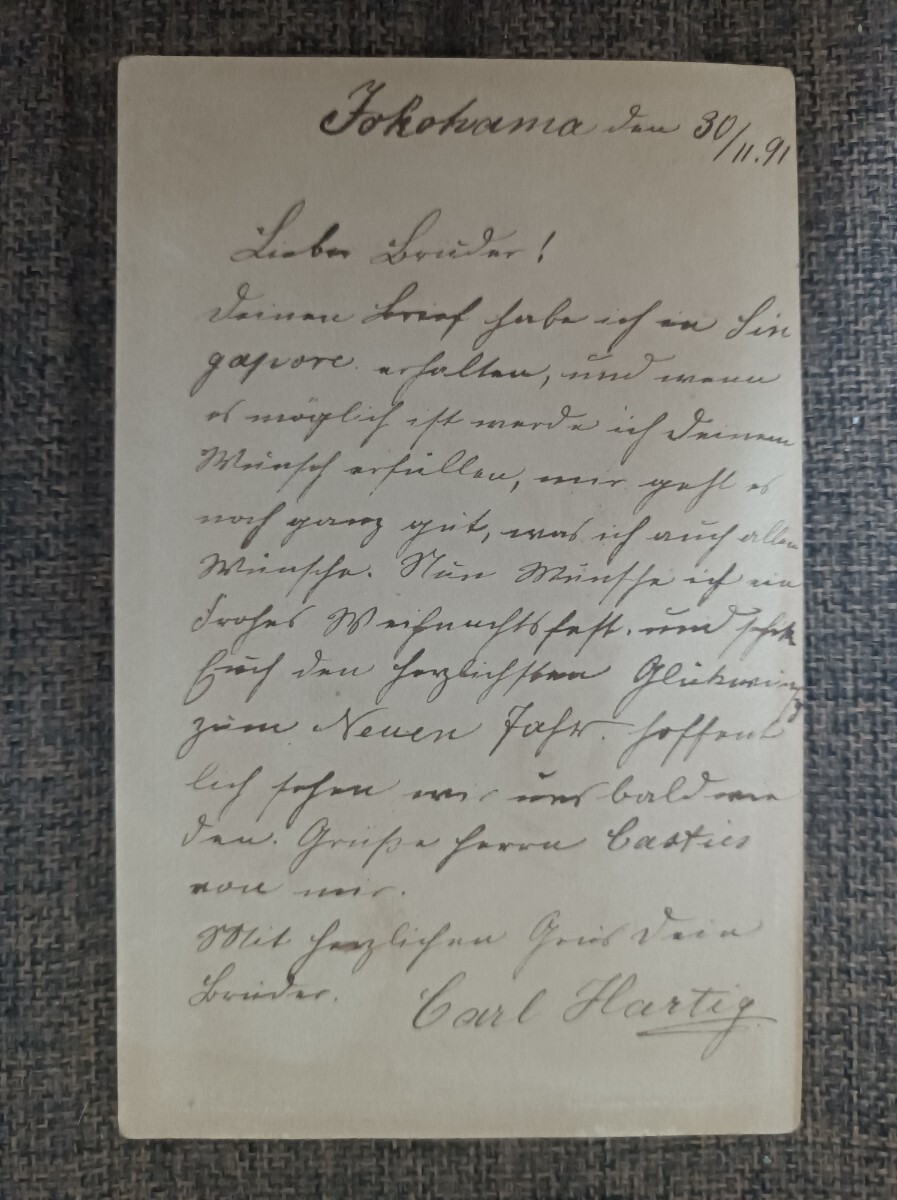 Jokohama den 30/11.91
Lieber Bruder!
Deinen Brief habe ich in Sin
gapore erhalten, und wenn
es möglich ist werde ich Deinem
Wunsch erfüllen, mir geht es
noch ganz gut, was ich auch allen
Wünsche. Nun Wünsche ich ein
Frohes Weihnachtsfest. und
Euch den herzlichsten
zum Neuen Jahr. hoffent
lich sehen wir uns bald wie
der. Grüße Herrn
von mir.
Mit herzlichen Grus Dein
Bruder. Carl Hartig